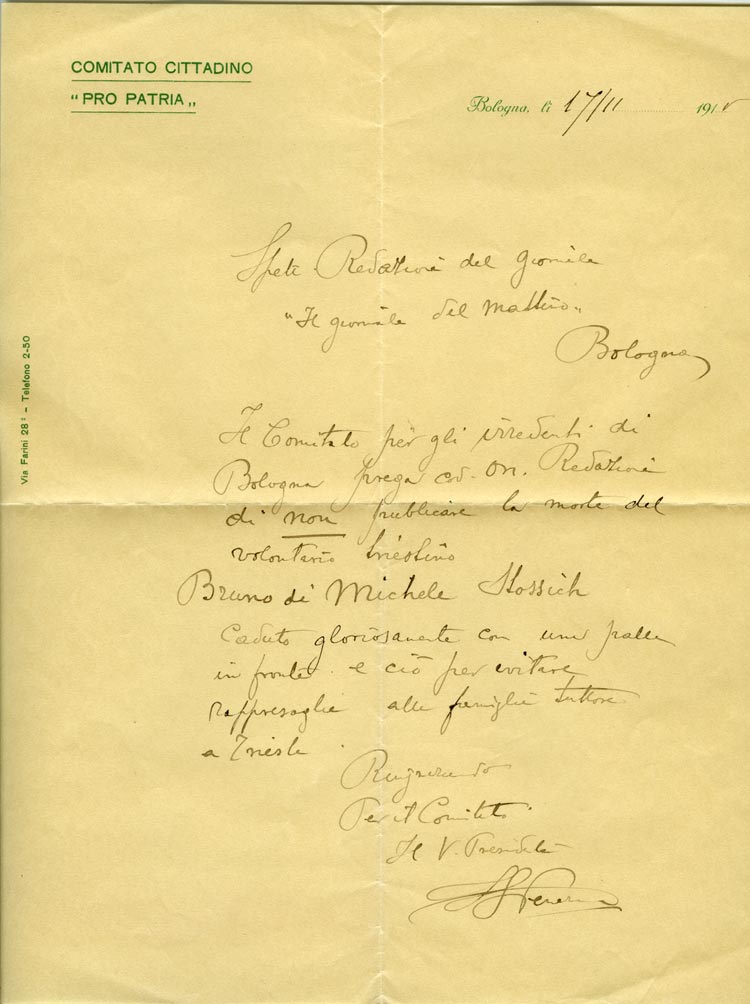 COMITATO CITTADINO
"PRO PATRIA"
Bologna, lì 17/11 191
Via Farini 28² - Telefono 2-50
Spett. Redazione del giornale
"Il giornale del mattino"
Bologna
Il Comitato per gli irredenti di
Bologna prega cod. On. Redazione
di non publicare la morte del
volontario triestino
Bruno di Michele Stossich
Caduto gloriosamente con una palla
in fronte. e ciò per evitare
rappresaglie alla famiglia tuttora
a Trieste.
Ringraziando
Per il Comitato
Il V. Presidente